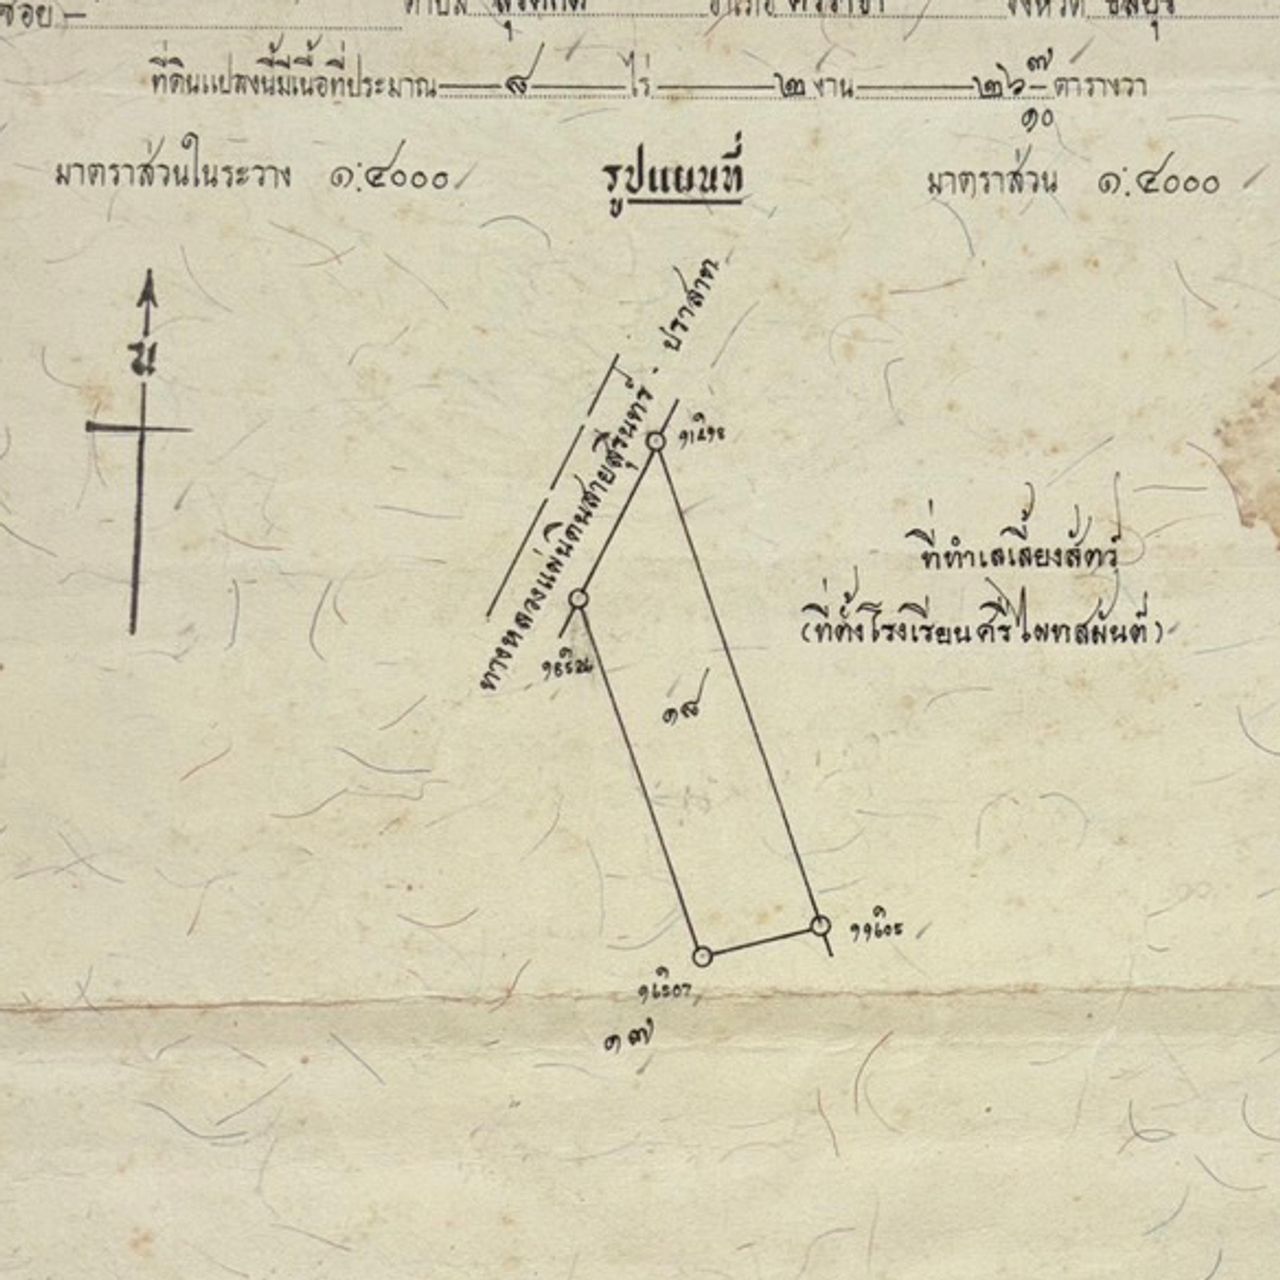 ซอย - ตำบล สุรศักดิ์ อำเภอ ศรีราชา จังหวัด ชลบุรี
ที่ดินแปลงนี้มีเนื้อที่ประมาณ ๘ ไร่ ๒ งาน ๒๖ ๗/๑๐ ตารางวา
มาตราส่วนในระวาง ๑:๔๐๐๐
รูปแผนที่
มาตราส่วน ๑:๔๐๐๐
น
ทางหลวงแผ่นดินสายสุรินทร์ - ปราสาท
ที่ทำเลเลี้ยงสัตว์
(ที่ตั้งโรงเรียนศรีไผทสมันต์)
๑๘
๑๗